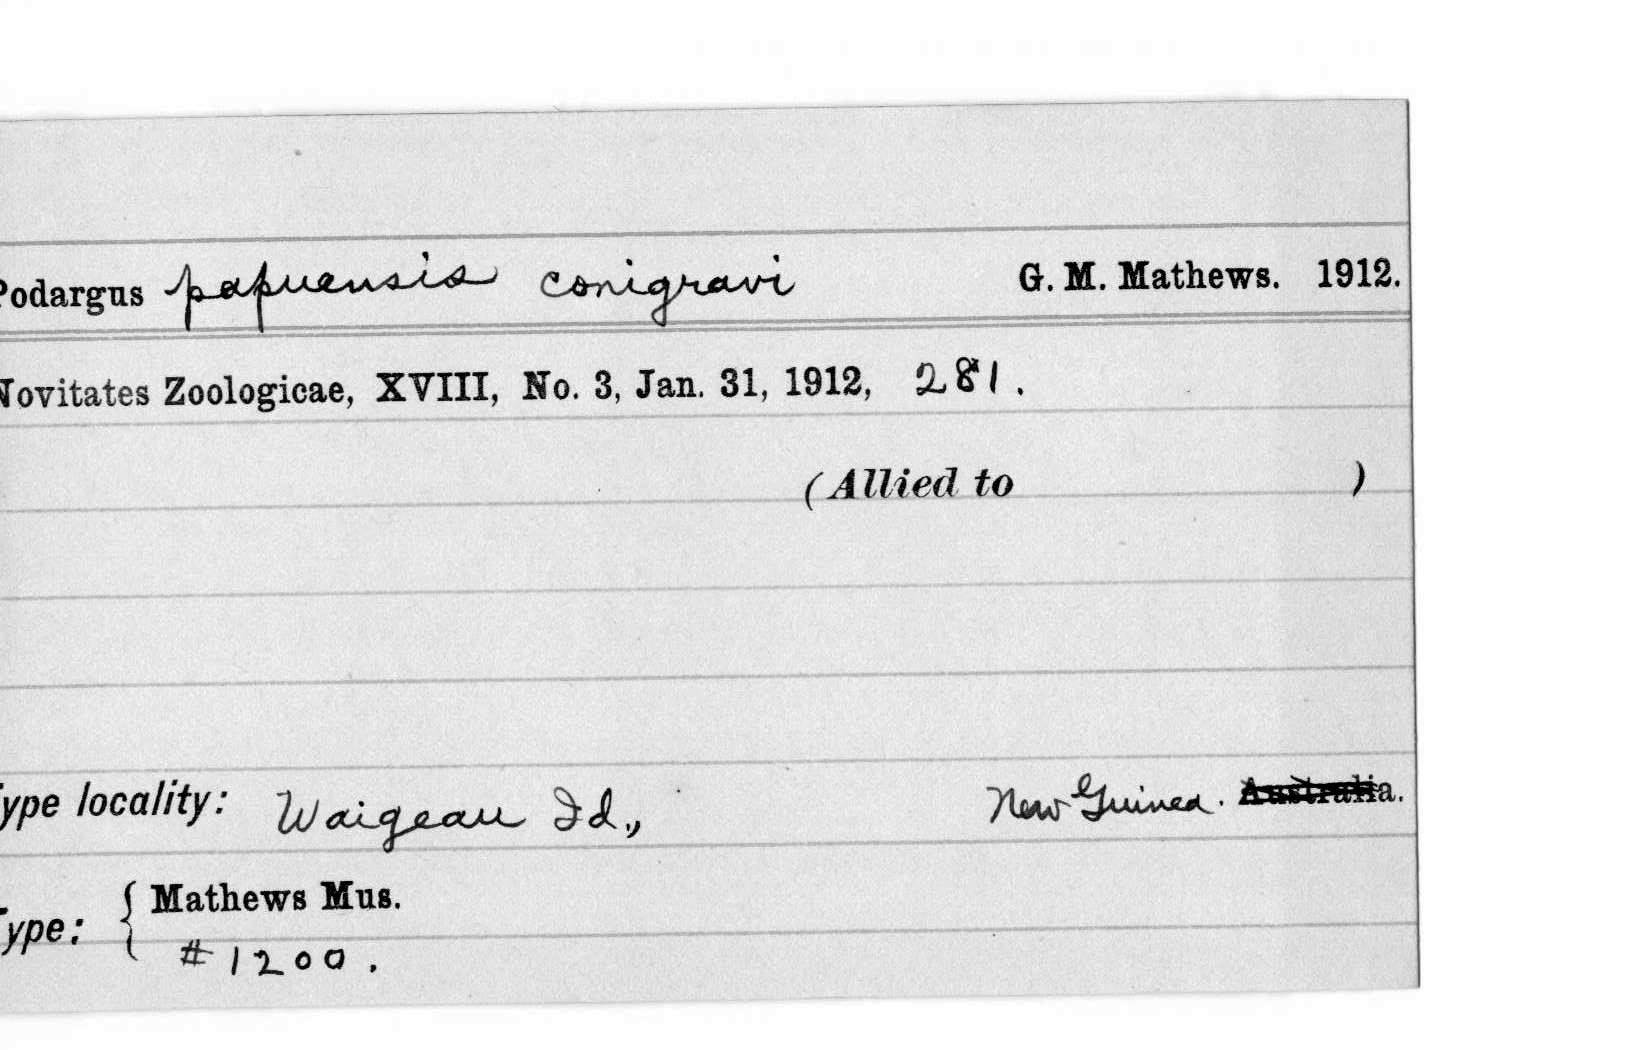 Podargus papuensis conigravi G. M. Mathews. 1912.
Novitates Zoologicae, XVIII, No. 3, Jan. 31, 1912, 281.
(Allied to )
Type locality: Waigeau Id., New Guinea. Australia.
Type: { Mathews Mus.
#1200.